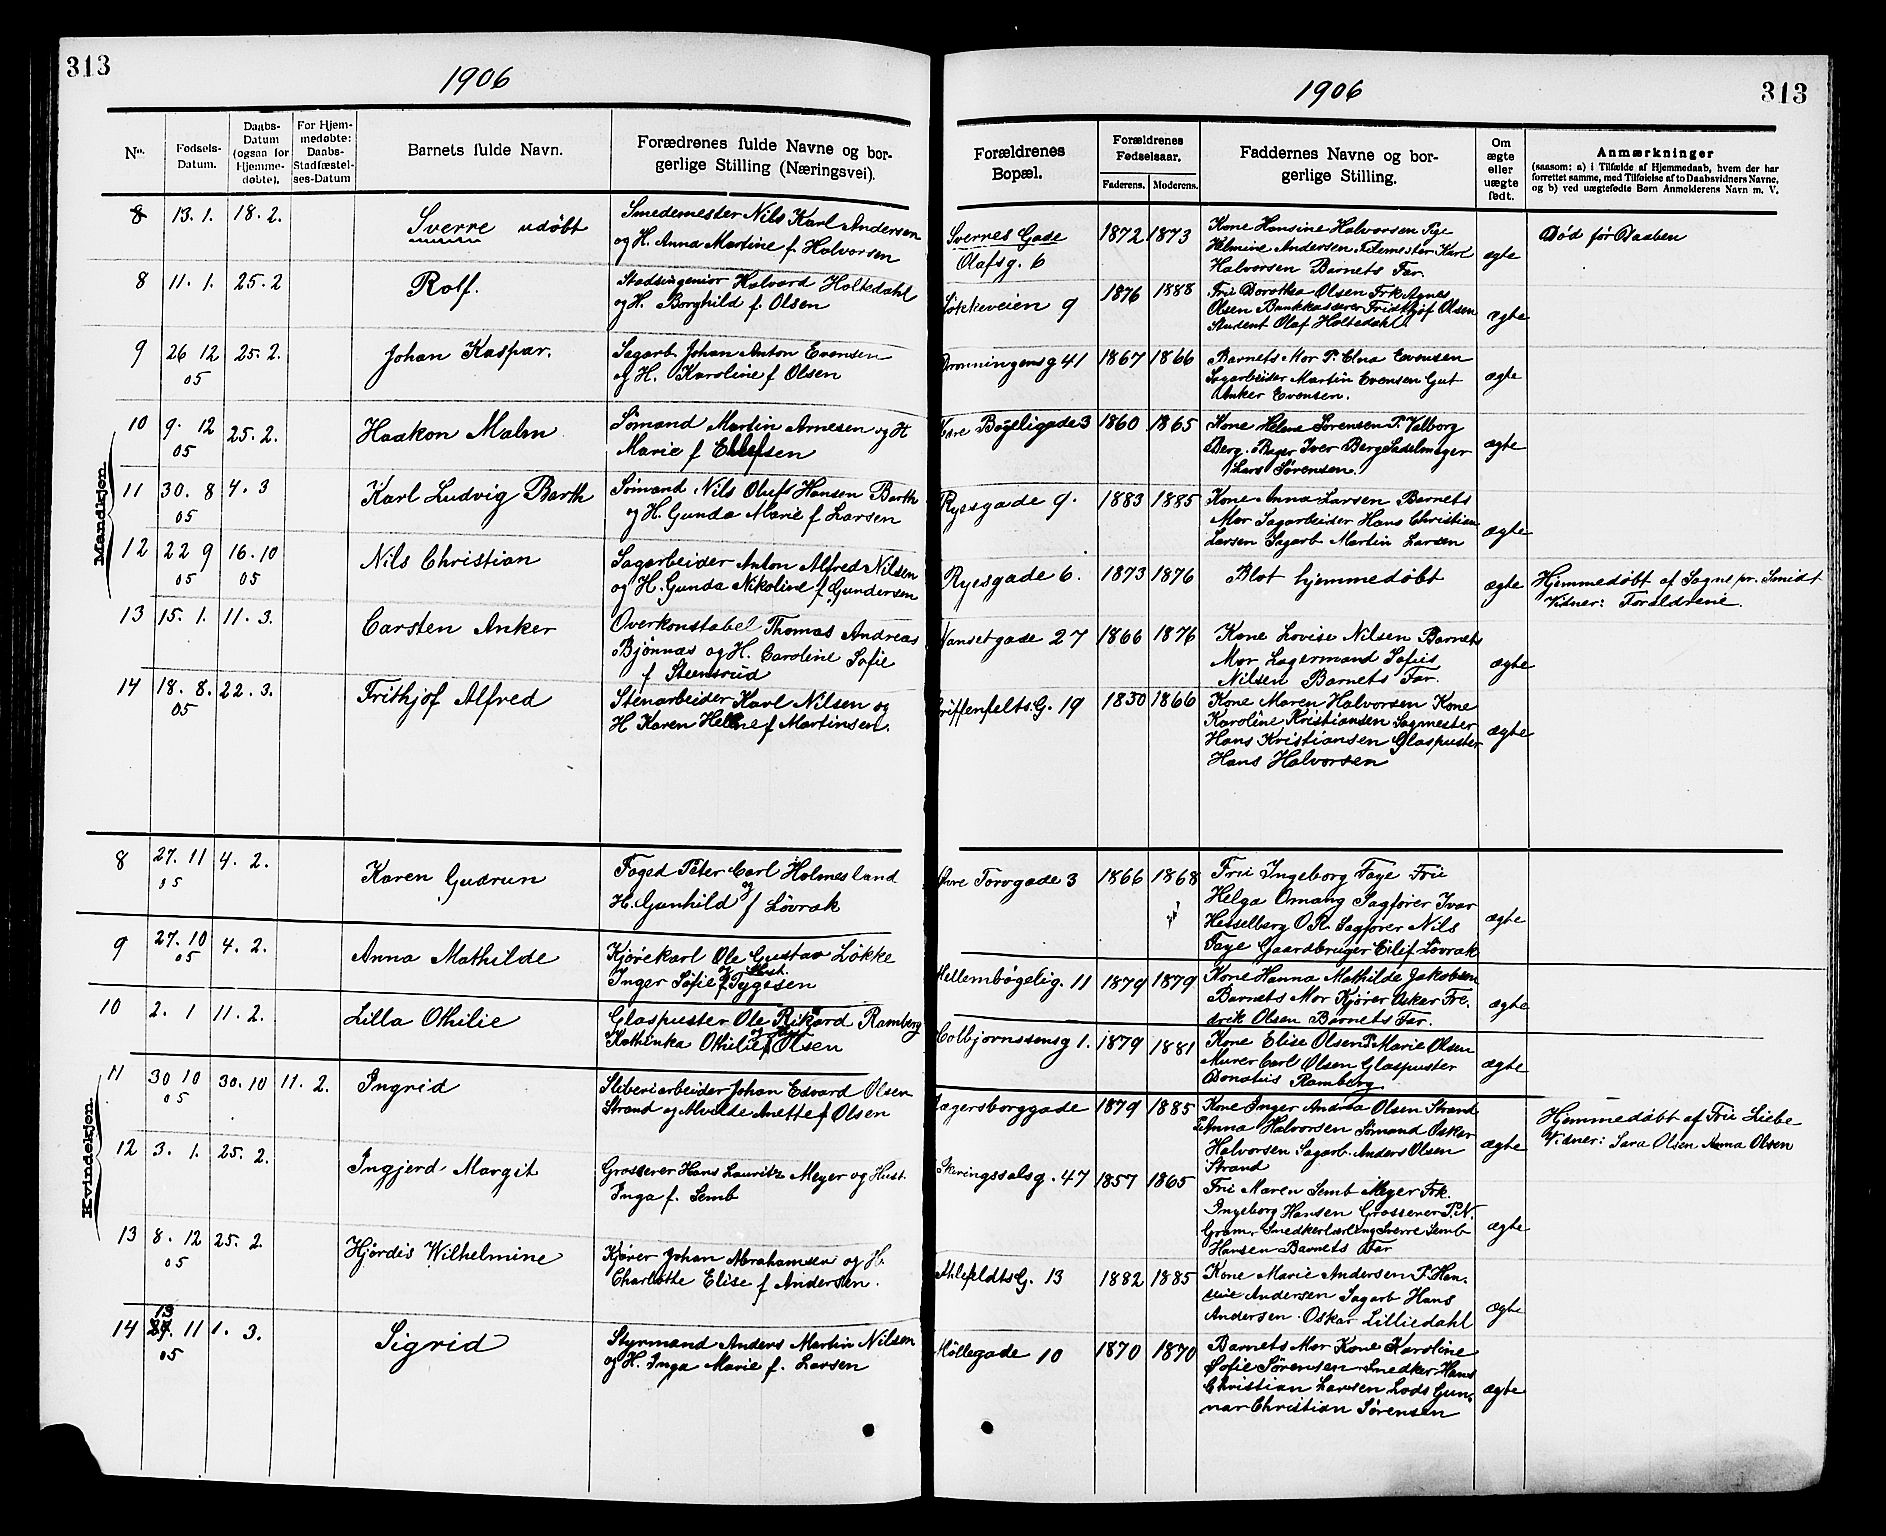 313
1906
1906
313
No.
Fødsels-
Datum.
Daabs-
Datum
(ogsaa for
Hjemme-
døbte).
For Hjem-
medøbte:
Daabs-
Stadfæstel-
ses-Datum
Barnets fulde Navn.
Forædrenes fulde Navne og bor-
gerlige Stilling (Næringsvei).
Forældrenes
Bopæl.
Forældrenes
Fødselsaar.
Faderens. Moderens.
Faddernes Navne og bor-
gerlige Stilling.
Om
ægte
eller
uægte
født.
Anmærkninger
(saasom: a) i Tilfælde af Hjemmedaab, hvem der har
forrettet samme, med Tilføielse af to Daabsvidners Navne,
og b) ved uægtefødte Børn Anmelderens Navn m. V.
Mandkjøn
8 13. 1. 18. 2. Sverre udøbt
Smedemester Nils Karl Andersen
og H. Anna Martine f. Halvorsen
Svernes Gade
Olafsg. 6
1872 1873
Kone Hansine Halvorsen Pige
Helmine Andersen Karl
Halvorsen Barnets Far.
ægte
Død før Daaben
8 11. 1. 25. 2 Rolf.
Stadsingeniør Halvard Holtedahl
og H. Borghild f. Olsen
Løkkeveien 9
1876 1888
Fru Dorothea Olsen Frk Agnes
Olsen Bankkasserer Fridthjof Olsen
Student Olaf Holtedahl.
ægte
9 26 12 25. 2. Johan Kaspar.
05
Sagarb. Johan Anton Evensen
og H. Karoline f Olsen
Dronningensg 41
1867 1866
Barnets Mor P. Elna Evensen
Sagarbeider Martin Evensen Gut
Anker Evensen.
ægte
10 9. 12 25. 2. Haakon Malm
05
Sømand Martin Arnesen og H
Marie f Ellefsen
Øvre Bøgeligade 3
1860 1865
Kone Helene Sørensen P. Valborg
Berg. Bager Iver Berg Sadelmager
Lars Sørensen.
ægte
11 30. 8 4. 3 Karl Ludvig Barth
05
Sømand Nils Olufs Hansen Barth
og H. Gunda Marie f Larsen
Ryesgade 9.
1883 1885
Kone Anna Larsen Barnets
Mor Sagarbeider Hans Christian
Larsen Sagarb Martin Larsen
ægte
12 22 9 16. 10 Nils Christian
05 05
Sagarbeider Anton Alfred Nilsen
og H. Gunda Nikoline f Gundersen
Ryesgade 6.
1873 1876
Blot hjemmedøbt
ægte
Hjemmedøbt af Sogne pr. Smidt
Vidner: Forældrene.
13 15. 1. 11. 3. Carsten Anker
Overkonstabel Thomas Andreas
Bjønnæs og H. Caroline Sofie
f Steensrud
Nansetgade 27
1866 1876
Kone Lovise Nilsen Barnets
Mor Lagermand Sofus
Nilsen Barnets Far.
ægte
14 18. 8. 22. 3. Frithjof Alfred
05
Stenarbeider Karl Nilsen og
H Karen Helene f Martinsen.
Griffenfelts G. 19
1850 1866
Kone Maren Halvorsen Kone
Karoline Kristiansen Sagmester
Hans Kristiansen Glaspuster
Hans Halvorsen
ægte
Kvindekjøn
8 27. 11 4. 2. Karen Gudrun
05
Foged Peter Carl Holmesland
og
H. Gunhild f Løvrak
Øvre Torvgade 3
1866 1868
Fru Ingeborg Faye Fru
Helga Omang Sagfører Ivar
Hesselberg O.R. Sagfører Nils
Faye Gaardbruger Eilif Løvrak
ægte
9 27. 10 4. 2. Anna Mathilde
05
Kjørekarl Ole Gustav Løkke
og Hust.
Inger Sofie f Tygesen
Mellembøgelig. 11
1879 1879
Kone Hanna Mathilde Jakobsen
Barnets Mor Kjører Osker Fre-
drik Olsen Barnets Far.
ægte
10 2. 1 11. 2. Lilla Othilie
Glaspuster Ole Rikard Ramberg
Kathinka Othilie f Olsen
Colbjørnssensg 1.
1879 1881
Kone Elise Olsen P. Marie Olsen
Murer Carl Olsen Glaspuster
Donatus Ramberg
ægte
11 30 10 30. 10 11. 2. Ingrid
05
Sliberiarbeider Johan Edvard Olsen
Strand og Alvilde Anette f Olsen
Jægersborggade
1879 1885
Kone Inger Andrea Olsen Strand
P. Anna Halvorsen Sømand Oskar
Halvorsen Sagarb. Anders Olsen
Strand
ægte
Hjemmedøbt af Fru Liebe
Vidner: Sara Olsen Anna Olsen
12 3. 1. 25. 2. Ingjerd Margit
Grosserer Hans Lauritz Meyer og Hust.
Inga f. Semb
Skiringssalsg. 47
1857 1865
Fru Maren Semb Meyer Frk.
Ingeborg Hansen Grosserer P. N.
Gram. Smedkerlærling Sverre Semb
Hansen Barnets Far
ægte
13 8. 12 25. 2. Hjørdis Wilhelmine
05
Kjører Johan Abrahamsen og H.
Charlotte Elise f Andersen.
AhlefeldtsG. 13
1882 1885
Kone Marie Andersen P. Han-
Andersen Sagarb Hans
Andersen. Oskar Lilliedahl
ægte
13
14 27. 11 1. 3. Sigrid
05
Styrmand Anders Martin Nilsen
og H. Inga Marie f. Larsen
Møllegade 10
1870 1870
Barnets Mor Kone Karoline
Sofie Sørensen Smedker Hans
Christian Larsen Lods Gun-
nar Christian Sørensen
ægte